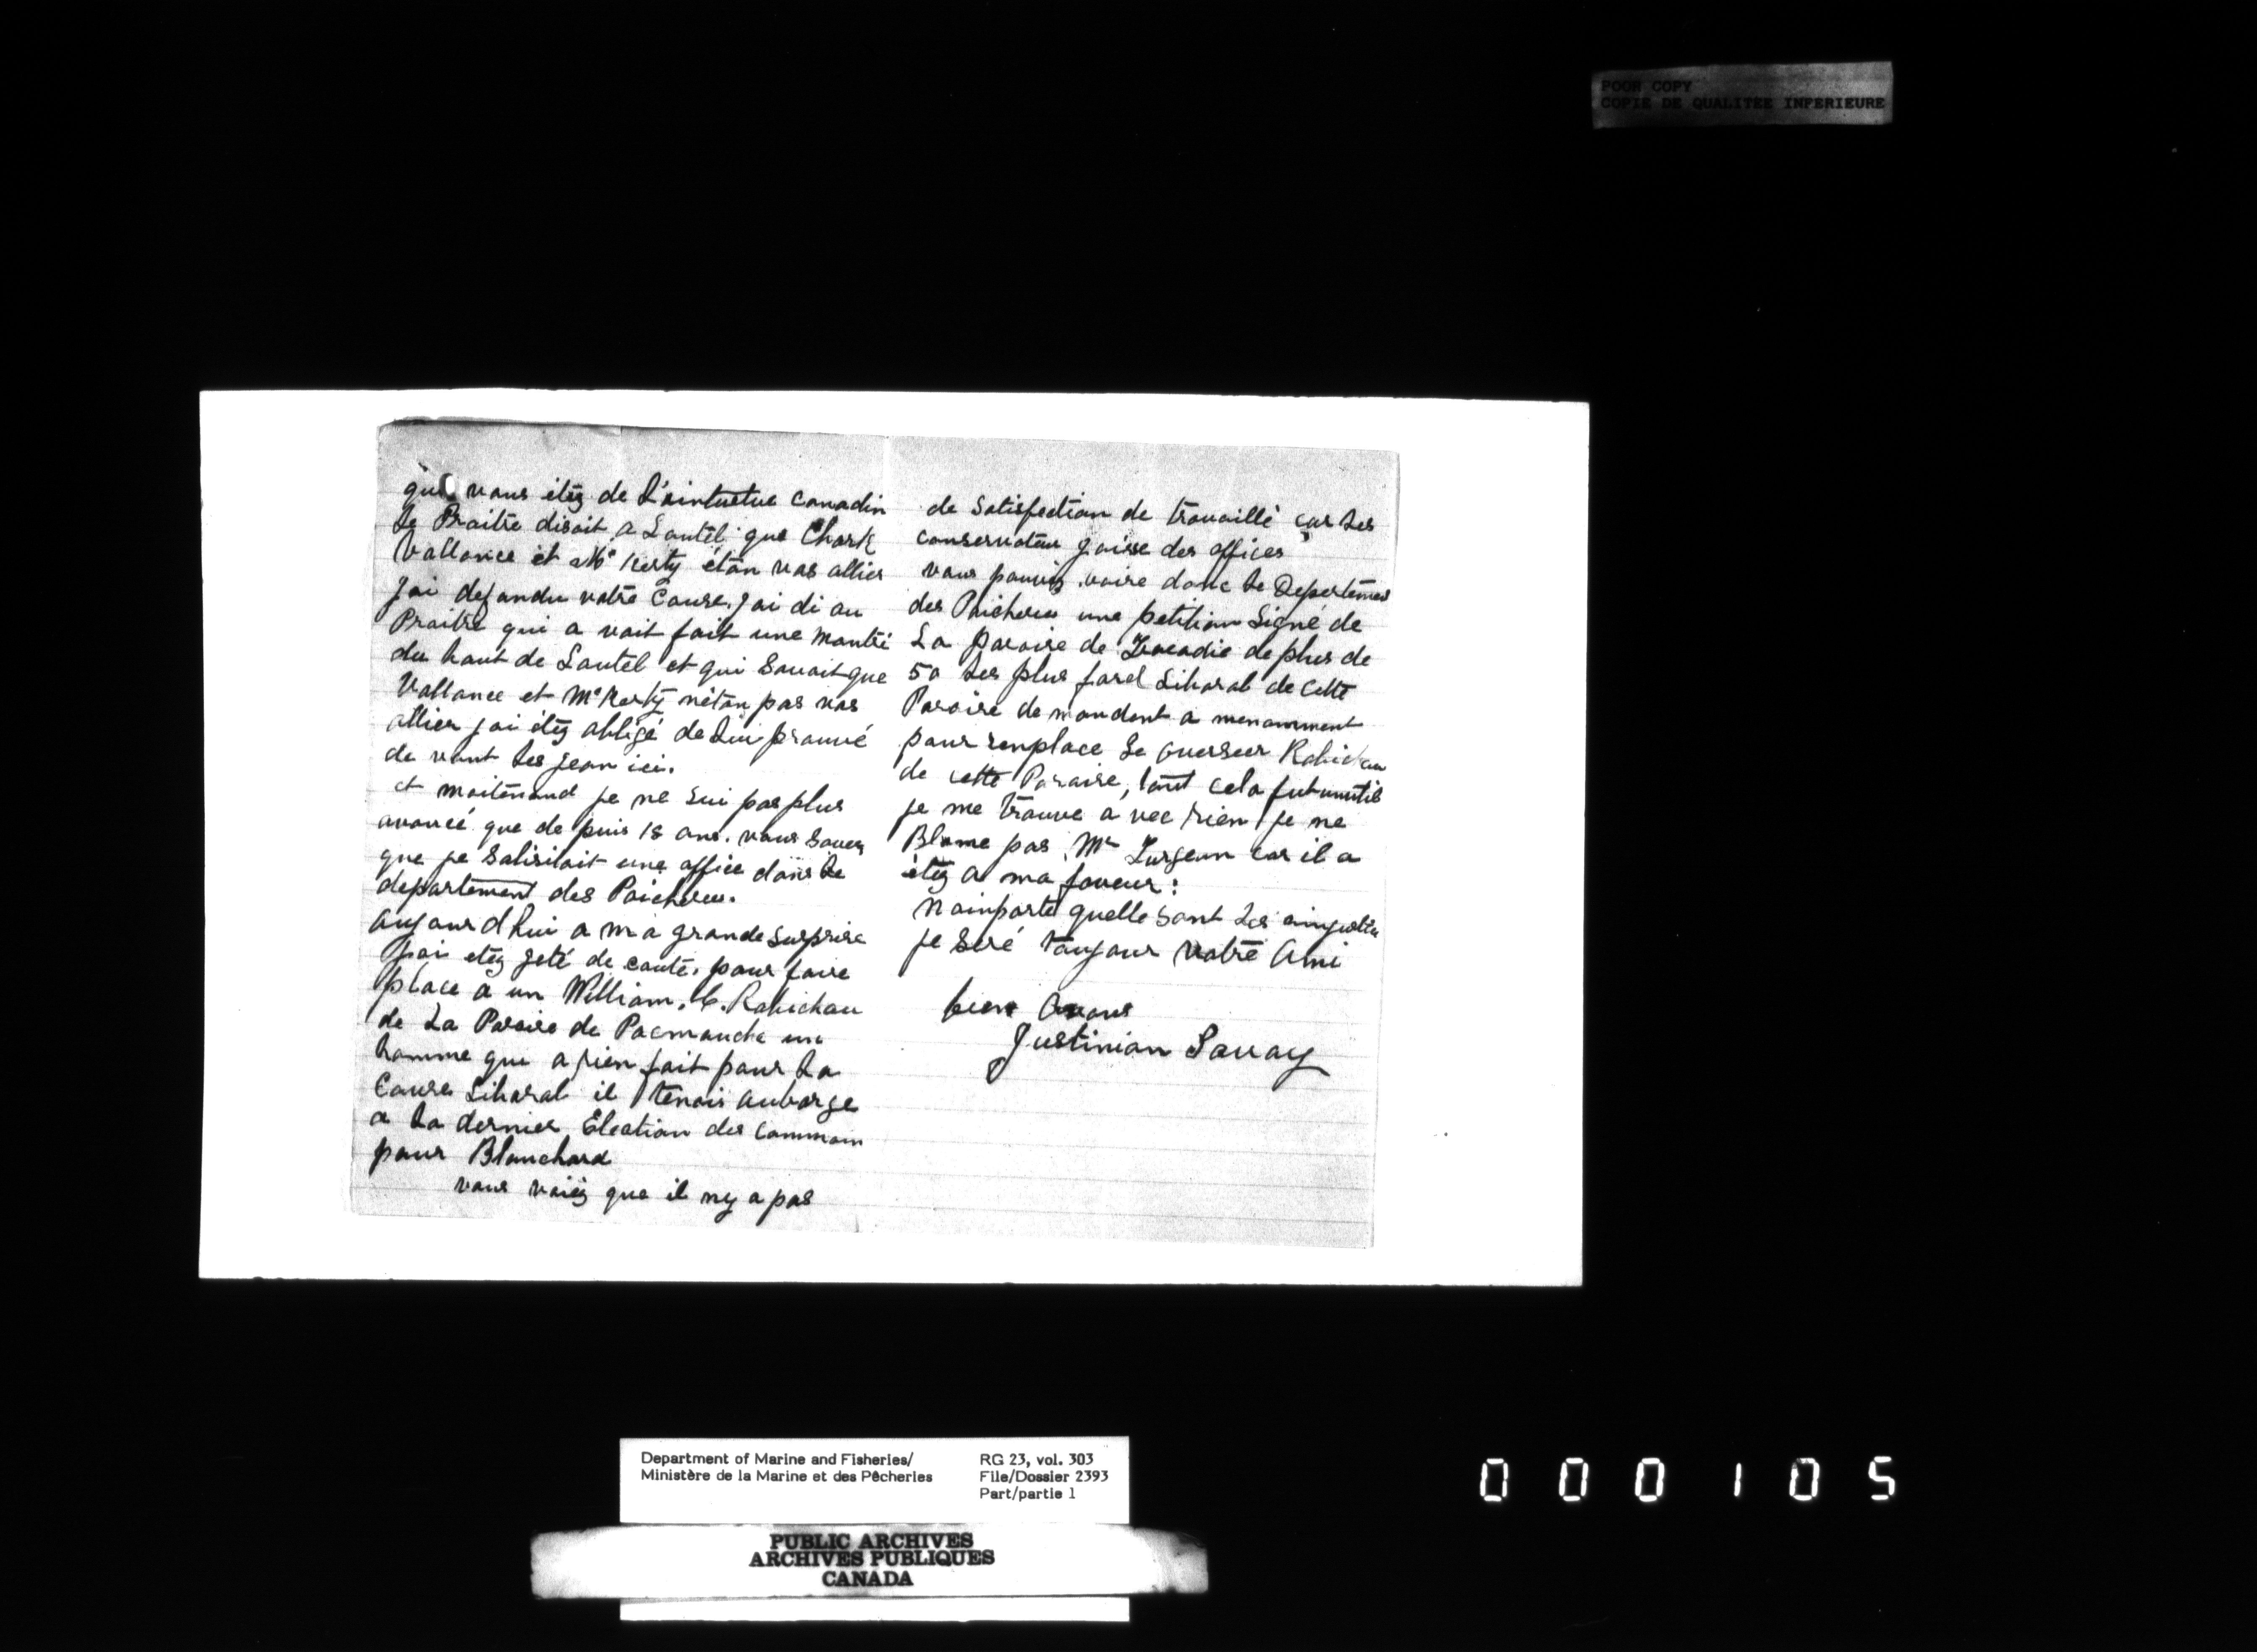 POOR COPY
COPIE DE QUALITEE INFERIEURE
que vous étéz de L'aintuetue Canadin
Le Praitre disoit a Lautél que Chark
Vallance et Mc Kerty étan vos allier
jai defandu votre Cause. jai di au
Praitre qui a vait fait une montri
du haut de Lautél et qui Savait que
Vallance et Mc Kerty nétan pas vos
allier jai étéz abligé de Lui prouvé
de vant Les jean ici.
et maitenand je ne sui pas plus
avancé que de puis 18 ans. vous Savez
que je Salisitait une office dans Le
département des Paicheres.
aujourdhui a ma grande surprise
jai etéz jeté de couté. pour faire
place a un William. C. Robichau
de La Paroise de Pacmouche un
homme que a rien fait pour La
Cause Liharal il tenois auborge
a La dernier Election des Commoin
pour Blanchard
vous voiéz que il ny a pas
de Satisfection de trouaillé car Les
conservateur jouisse des offices
vous pouvéz voire donc Le Departemen
des Paicheres une petition Signé de
La paroise de Tracadie de plus de
50 Les plus fard Liharal de Cette
Paroise de mondent a menomment
pour remplace Le ouerseer Robichau
de cette Paroise, tout cela fut inutile
je me trouve a vec rien je ne
Blame pas Mr Turgeon car il a
étéz a ma faveur:
Nainporte quelle sont Les oinjustice
je Seré Toujour Votre Ami
bien Avous
Justinian Savoy
Department of Marine and Fisheries/
Ministère de la Marine et des Pêcheries
RG 23, vol. 303
File/Dossier 2393
Part/partie 1
PUBLIC ARCHIVES
ARCHIVES PUBLIQUES
CANADA
000105